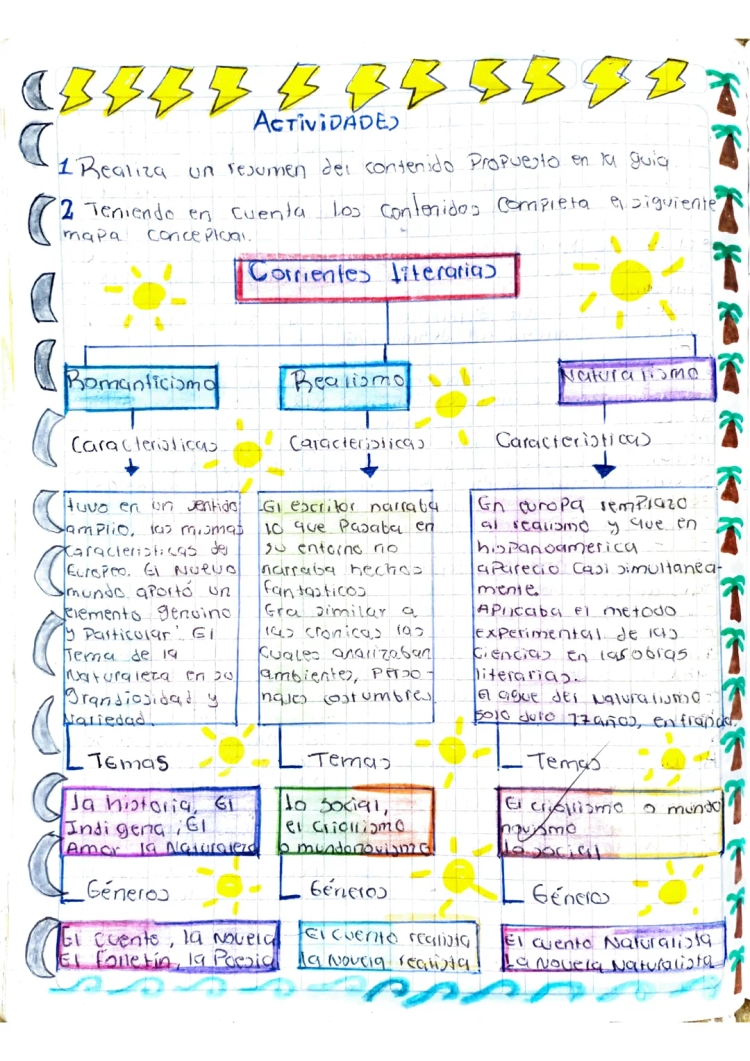 ACTIVIDADES
1 Realiza un resumen del contenido Propuesto en la guia
2 Teniendo en cuenta los contenidos completa el siguiente
mapa conceptual.
Corrientes literarias
Romanticismo
Realismo
Naturalismo
Caracteristicas
Caracteristicas
Caracteristicas
tuvo en un sentido
amplio, las mismas
caracteristicas del
Europeo. El Nuevo
mundo aportó un
elemento genuino
y Particular: El
Tema de la
Naturaleza en su
grandiosidad y
Variedad.
El escritor narraba
lo que Pasaba en
su entorno no
narraba hechos
fantasticos
Era similar a
las cronicas las
cuales analizaban
ambientes, perso-
najes costumbres.
En europa remplazo
al realismo y que en
hispanoamerica
aparecio casi simultanea-
mente.
Aplicaba el metodo
experimental de las
ciencias en las obras
literarias.
El auge del Naturalismo
solo duro 17 años, en francia.
Temas
Temas
Temas
la historia, El
Indigena, El
Amor la Naturaleza
lo social,
el criollismo
o mundonovismo
El criollismo o mundo
novismo
Lo social
Géneros
Géneros
Géneros
El cuento, la Novela
El folletin, la Poesia
El cuento realista
la Novela realista
El cuento Naturalista
La Novela Naturalista